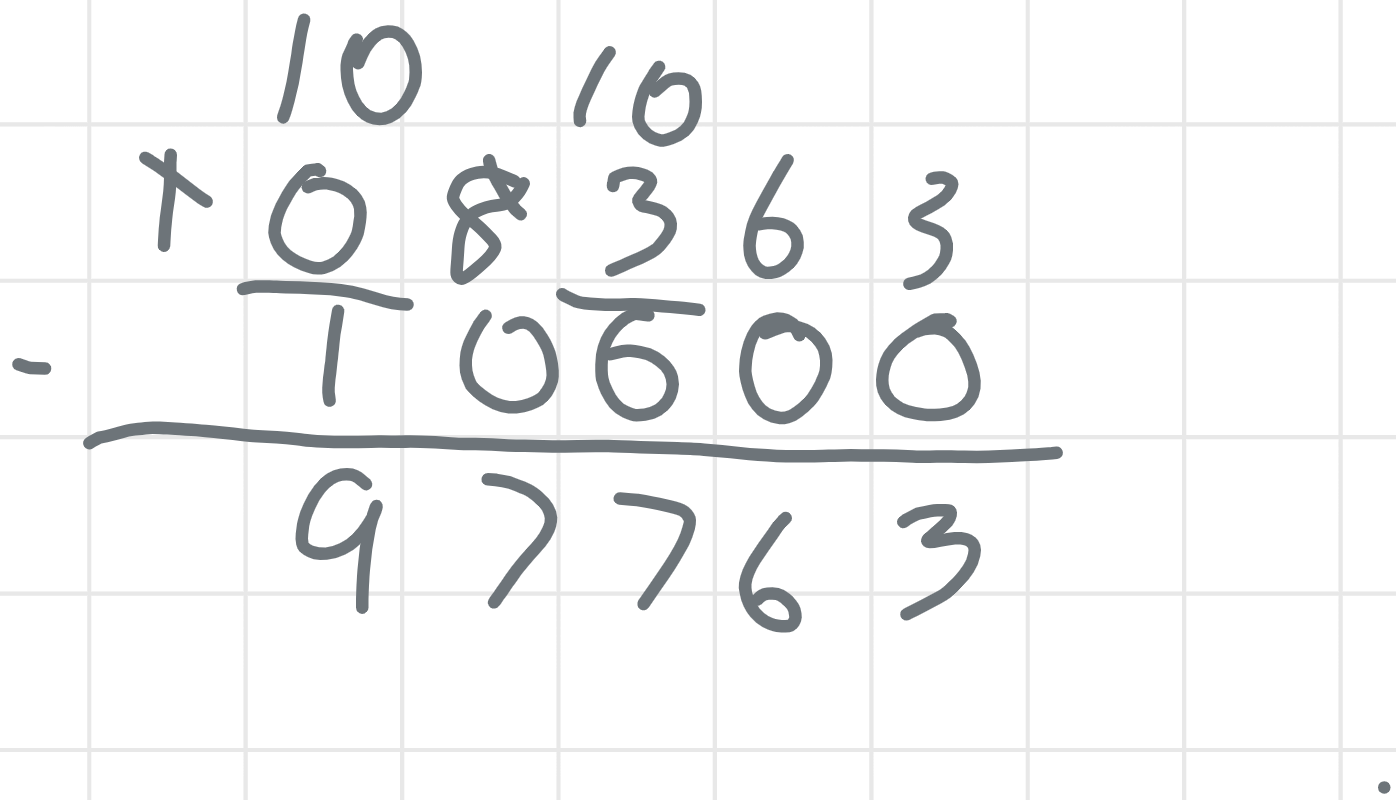 10 10
1 0 8 3 6 3
- 1 0 6 0 0
9 7 7 6 3